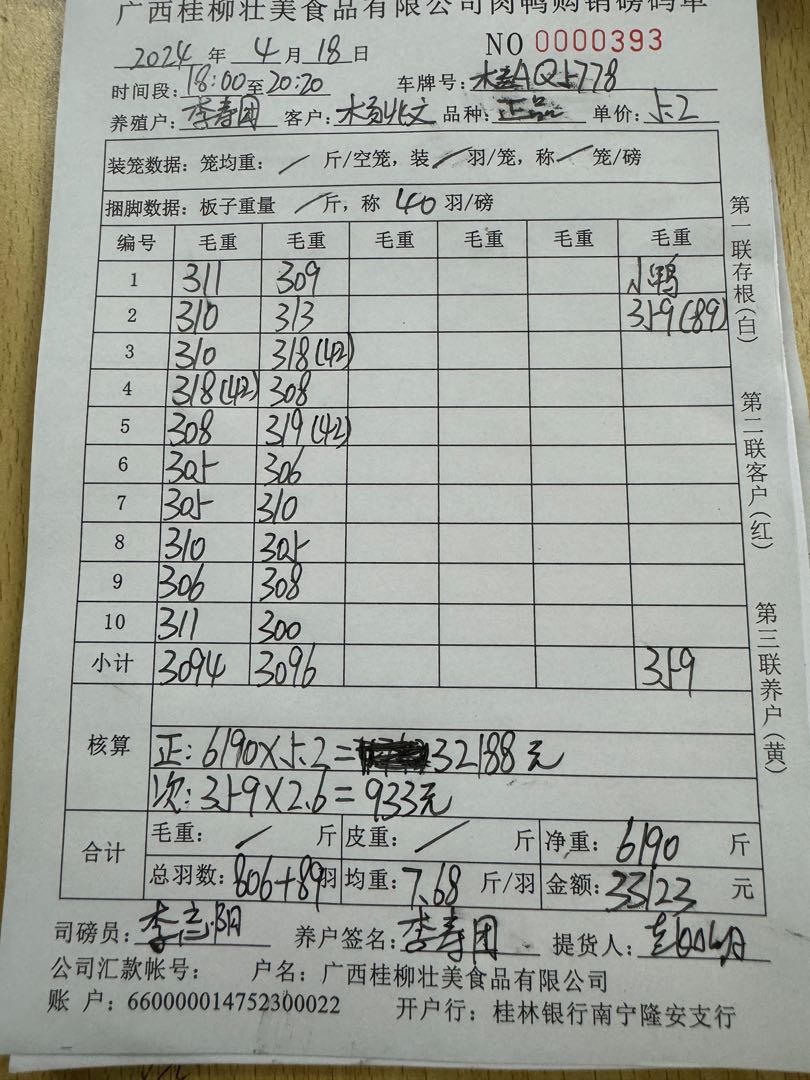 广西桂柳壮美食品有限公司肉鸭购销磅码单
2024 年 4 月 18 日 NO 0000393
时间段: 18:00至20:20 车牌号: AQ5778
养殖户: 李寿团 客户: 品种: 正品 单价: 5.2
装笼数据: 笼均重: / 斤/空笼, 装 / 羽/笼, 称 / 笼/磅
捆脚数据: 板子重量 / 斤, 称 40 羽/磅
编号 毛重 毛重 毛重 毛重 毛重 毛重
1 311 309 小鸭
2 310 313 359(89)
3 310 318(42)
4 318(42) 308
5 308 319(42)
6 305 306
7 305 310
8 310 305
9 306 308
10 311 300
小计 3094 3096 359
核算
正: 6190×5.2= 32188元
次: 359×2.6=933元
合计
毛重: / 斤 皮重: / 斤 净重: 6190 斤
总羽数: 806+89羽 均重: 7.68 斤/羽 金额: 33123 元
司磅员: 李志阳 养户签名: 李寿团 提货人:
公司汇款帐号: 户名: 广西桂柳壮美食品有限公司
账 户: 660000014752300022 开户行: 桂林银行南宁隆安支行
第一联存根(白)
第二联客户(红)
第三联养户(黄)